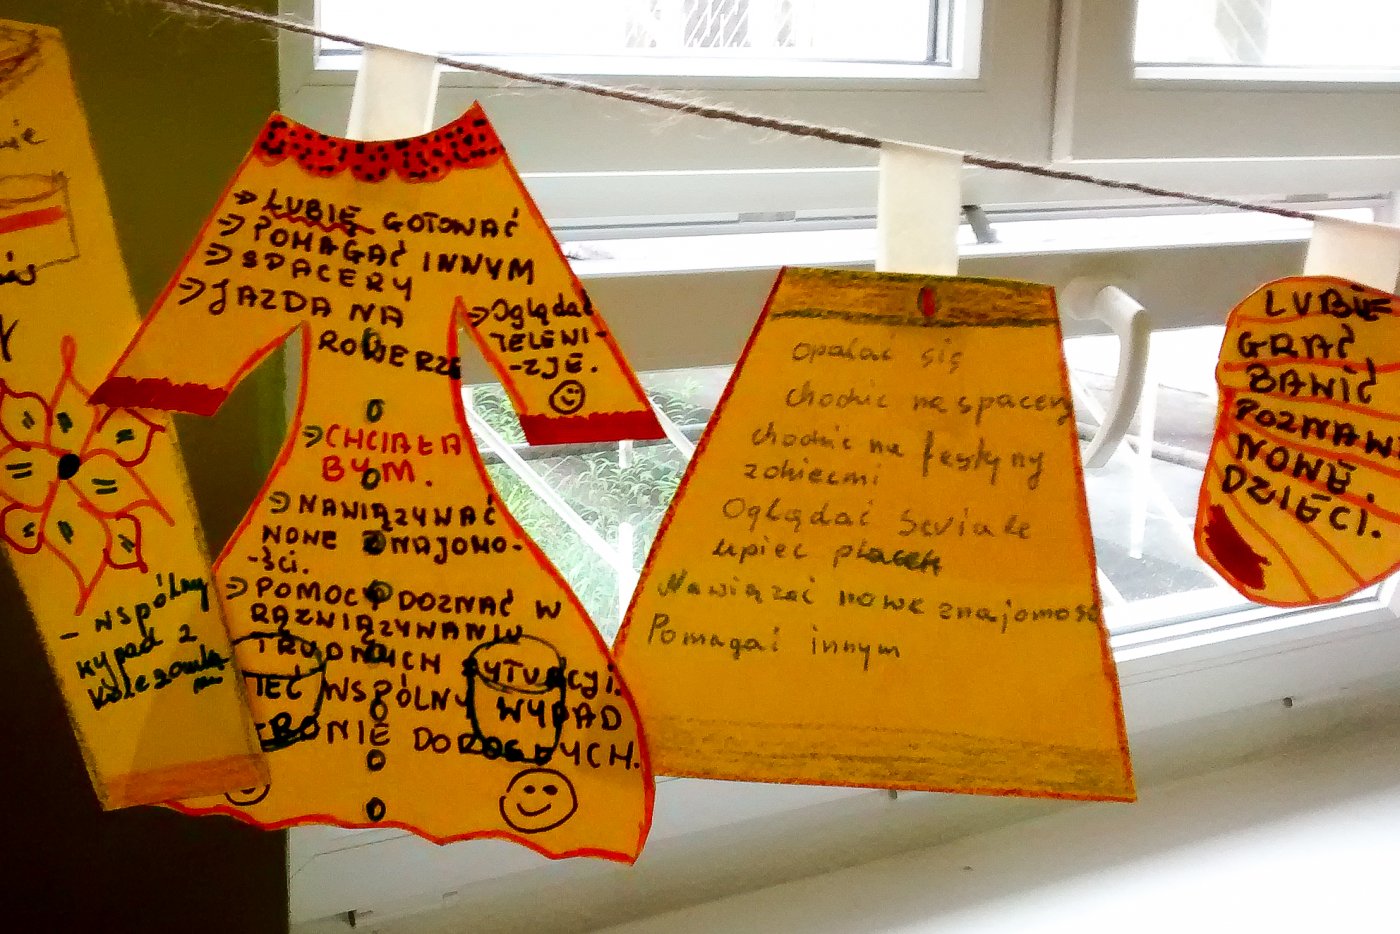 - WSPÓLNY
wypad z
koleżanka-
mi
→ LUBIĘ GOTOWAĆ
→ POMAGAĆ INNYM
→ SPACERY
→ JAZDA NA
ROWERZE
→ Oglądać
TELEWI-
-ZJE.
→ CHCIAŁA
BYM.
→ NAWIĄZYWAĆ
NOWE ZNAJOMO-
-ŚCI.
→ POMOC DOZNAĆ W
RAZWIĄZYWANIU
TRUDNYCH SYTUACJI.
WSPÓLNY WYPAD
GRONIE DOROSŁYCH.
opalać się
chodzić na spacery
chodzić na festyny
zdziećmi
Oglądać Seriale
upiec placek
Nawiązać nowe znajomość
Pomagać innym
LUBIĘ
GRAĆ,
BAWIĆ
POZNAWA
NOWE.
DZIECI.